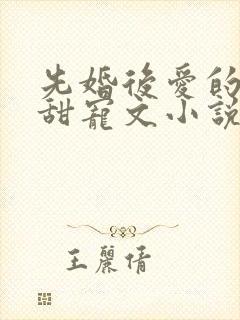 先婚後愛的
甜寵文小說
王麗倩